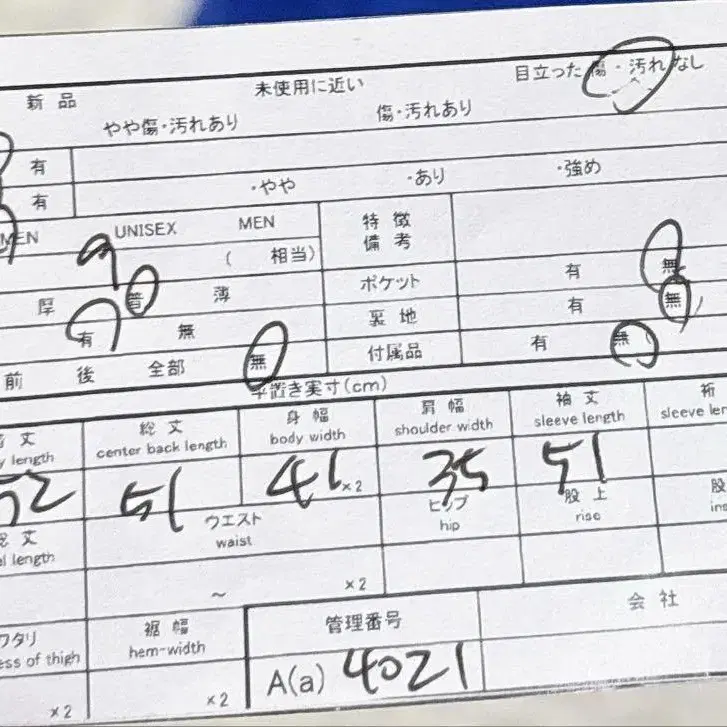 新品 未使用に近い 目立った傷・汚れなし
やや傷・汚れあり 傷・汚れあり
有
有 ・やや ・あり ・強め
MEN UNISEX MEN 特徴
備考
9 ( 相当)
厚 普 薄 ポケット 有 無
有 無 裏地 有 無
前 後 全部 無 付属品 有 無
平置き実寸(cm)
丈 総丈 身幅 肩幅 袖丈 裄
y length center back length body width shoulder width sleeve length sleeve len
52 51 41 ×2 35 51
総丈 ウエスト ヒップ 股上 股
l length waist hip rise in
~ ×2
ワタリ 裾幅 管理番号 会社
ess of thigh hem-width
×2 ×2 A(a) 4021